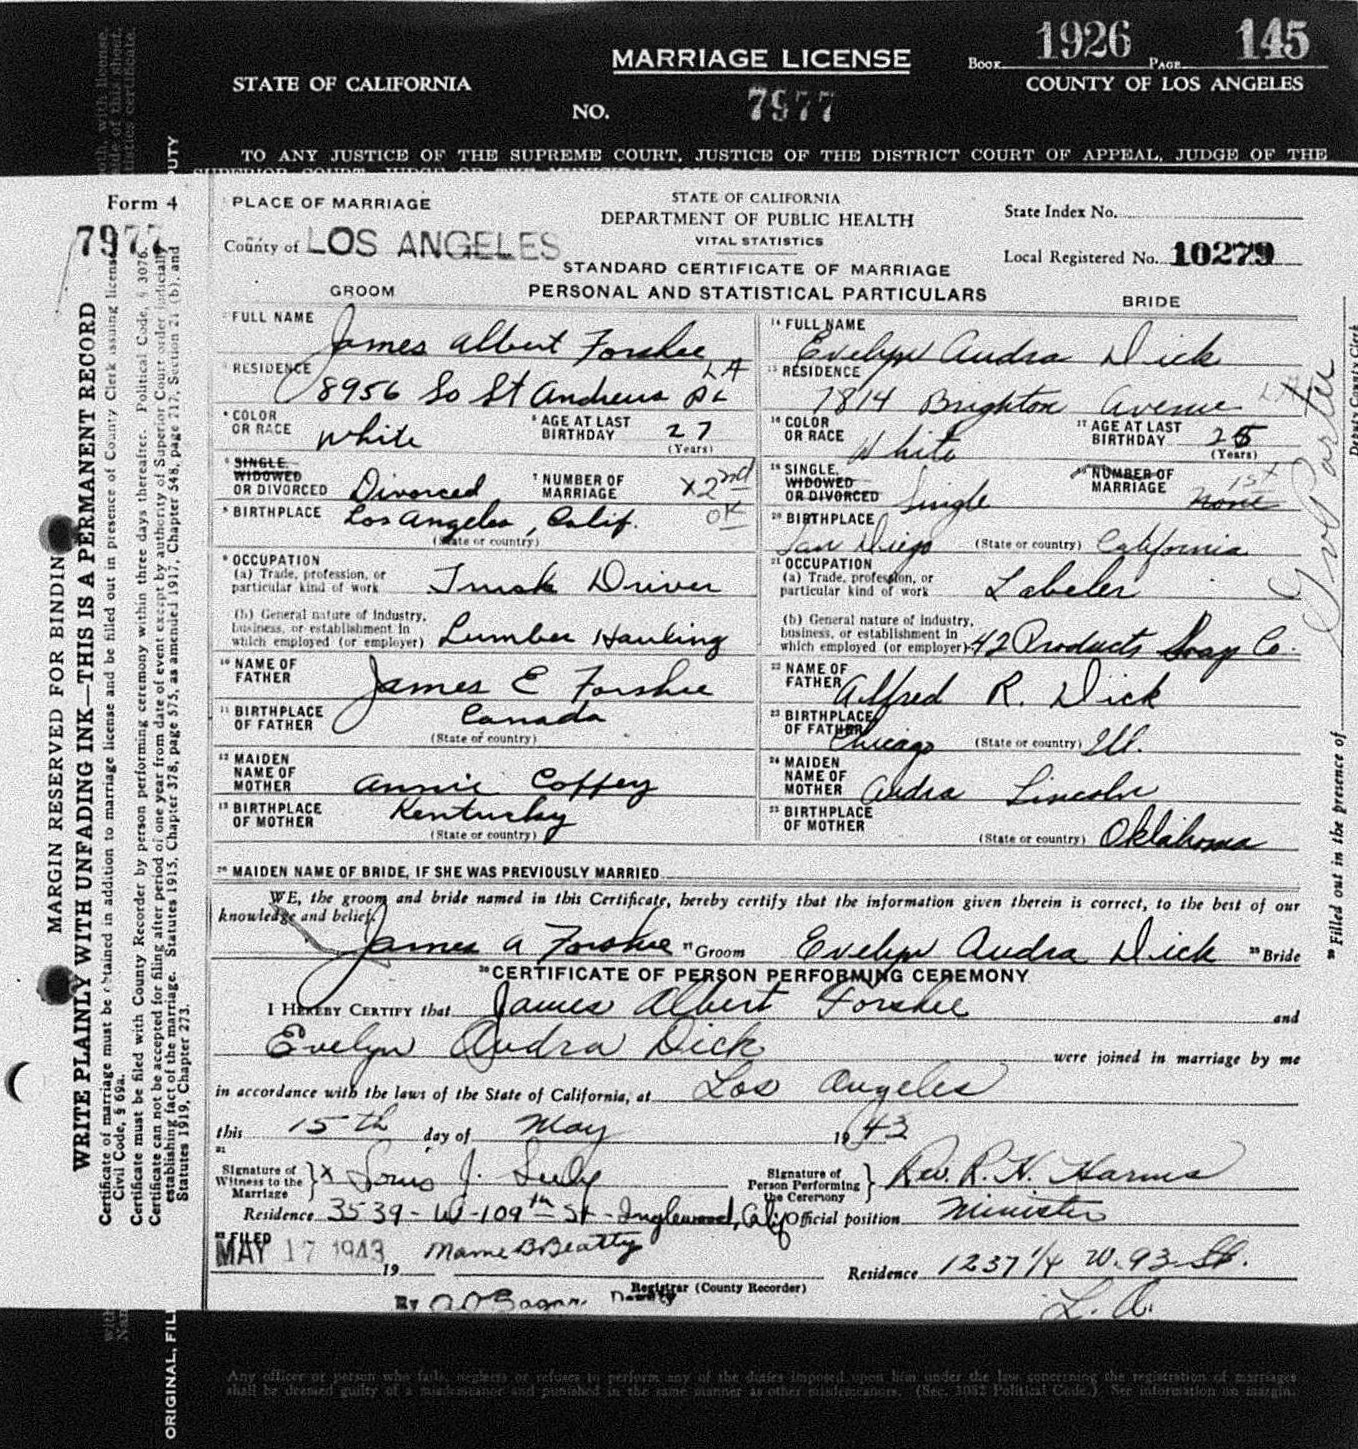 MARRIAGE LICENSE
BOOK 1926 PAGE 145
STATE OF CALIFORNIA
COUNTY OF LOS ANGELES
NO. 7977
TO ANY JUSTICE OF THE SUPREME COURT, JUSTICE OF THE DISTRICT COURT OF APPEAL, JUDGE OF THE
Form 4
7977
PLACE OF MARRIAGE
County of LOS ANGELES
STATE OF CALIFORNIA
DEPARTMENT OF PUBLIC HEALTH
VITAL STATISTICS
STANDARD CERTIFICATE OF MARRIAGE
State Index No.
Local Registered No. 10279
GROOM
PERSONAL AND STATISTICAL PARTICULARS
BRIDE
FULL NAME James Albert Forshee
14 FULL NAME Evelyn Audra Dick
RESIDENCE 8956 So St Andrews PL LA
15 RESIDENCE 7814 Brighton Avenue LA
4 COLOR OR RACE White
5 AGE AT LAST BIRTHDAY 27 (Years)
16 COLOR OR RACE White
17 AGE AT LAST BIRTHDAY 25 (Years)
6 SINGLE, WIDOWED OR DIVORCED Divorced
7 NUMBER OF MARRIAGE X2nd OK
18 SINGLE, WIDOWED OR DIVORCED Single
19 NUMBER OF MARRIAGE none 1st
8 BIRTHPLACE Los Angeles, Calif.
(State or country)
20 BIRTHPLACE San Diego (State or country) California
9 OCCUPATION
(a) Trade, profession, or particular kind of work Truck Driver
21 OCCUPATION
(a) Trade, profession, or particular kind of work Labeler
(b) General nature of industry, business, or establishment in which employed (or employer) Lumber Hauling
(b) General nature of industry, business, or establishment in which employed (or employer) 42 Products Soap Co.
10 NAME OF FATHER James E Forshee
22 NAME OF FATHER Alfred R. Dick
11 BIRTHPLACE OF FATHER Canada
(State or country)
23 BIRTHPLACE OF FATHER Chicago (State or country) Ill.
12 MAIDEN NAME OF MOTHER Annie Coffey
24 MAIDEN NAME OF MOTHER Audra Lincoln
13 BIRTHPLACE OF MOTHER Kentucky
(State or country)
25 BIRTHPLACE OF MOTHER (State or country) Oklahoma
26 MAIDEN NAME OF BRIDE, IF SHE WAS PREVIOUSLY MARRIED
WE, the groom and bride named in this Certificate, hereby certify that the information given therein is correct, to the best of our
knowledge and belief.
James A Forshee 27 Groom Evelyn Audra Dick 28 Bride
30 CERTIFICATE OF PERSON PERFORMING CEREMONY
I HEREBY CERTIFY that James Albert Forshee and
Evelyn Audra Dick were joined in marriage by me
in accordance with the laws of the State of California, at Los Angeles
this 15th day of May 1943
31
Signature of Witness to the Marriage } X Louis J. Seely
Signature of Person Performing the Ceremony } Rev. R. H. Harms
Residence 3539-W-109th St-Inglewood, Calif
Official position Minister
FILED
MAY 17 1943 19
Mame B Beatty
Registrar (County Recorder)
Residence 1237 1/4 W. 93 St.
L. A.
By Deputy
Any officer or person who fails, neglects or refuses to perform any of the duties imposed upon him under the law concerning the registration of marriages
shall be deemed guilty of a misdemeanor and punished in the same manner as other misdemeanors. (Sec. 3082 Political Code.) See information on margin.
MARGIN RESERVED FOR BINDING
WRITE PLAINLY WITH UNFADING INK—THIS IS A PERMANENT RECORD
Certificate of marriage must be obtained in addition to marriage license and be filled out in presence of County Clerk issuing license.
Civil Code, § 69a.
Certificate must be filed with County Recorder by person performing ceremony within three days thereafter. Political Code, § 3076.
Certificate can not be accepted for filing after period of one year from date of event except by authority of Superior Court order judicially
establishing fact of the marriage. Statutes 1915, Chapter 378, page 575, as amended 1917, Chapter 548, page 717, Section 21 (b), and
Statutes 1919, Chapter 273.
ORIGINAL, FIL
PUTY
Filled out in the presence of
Deputy County Clerk